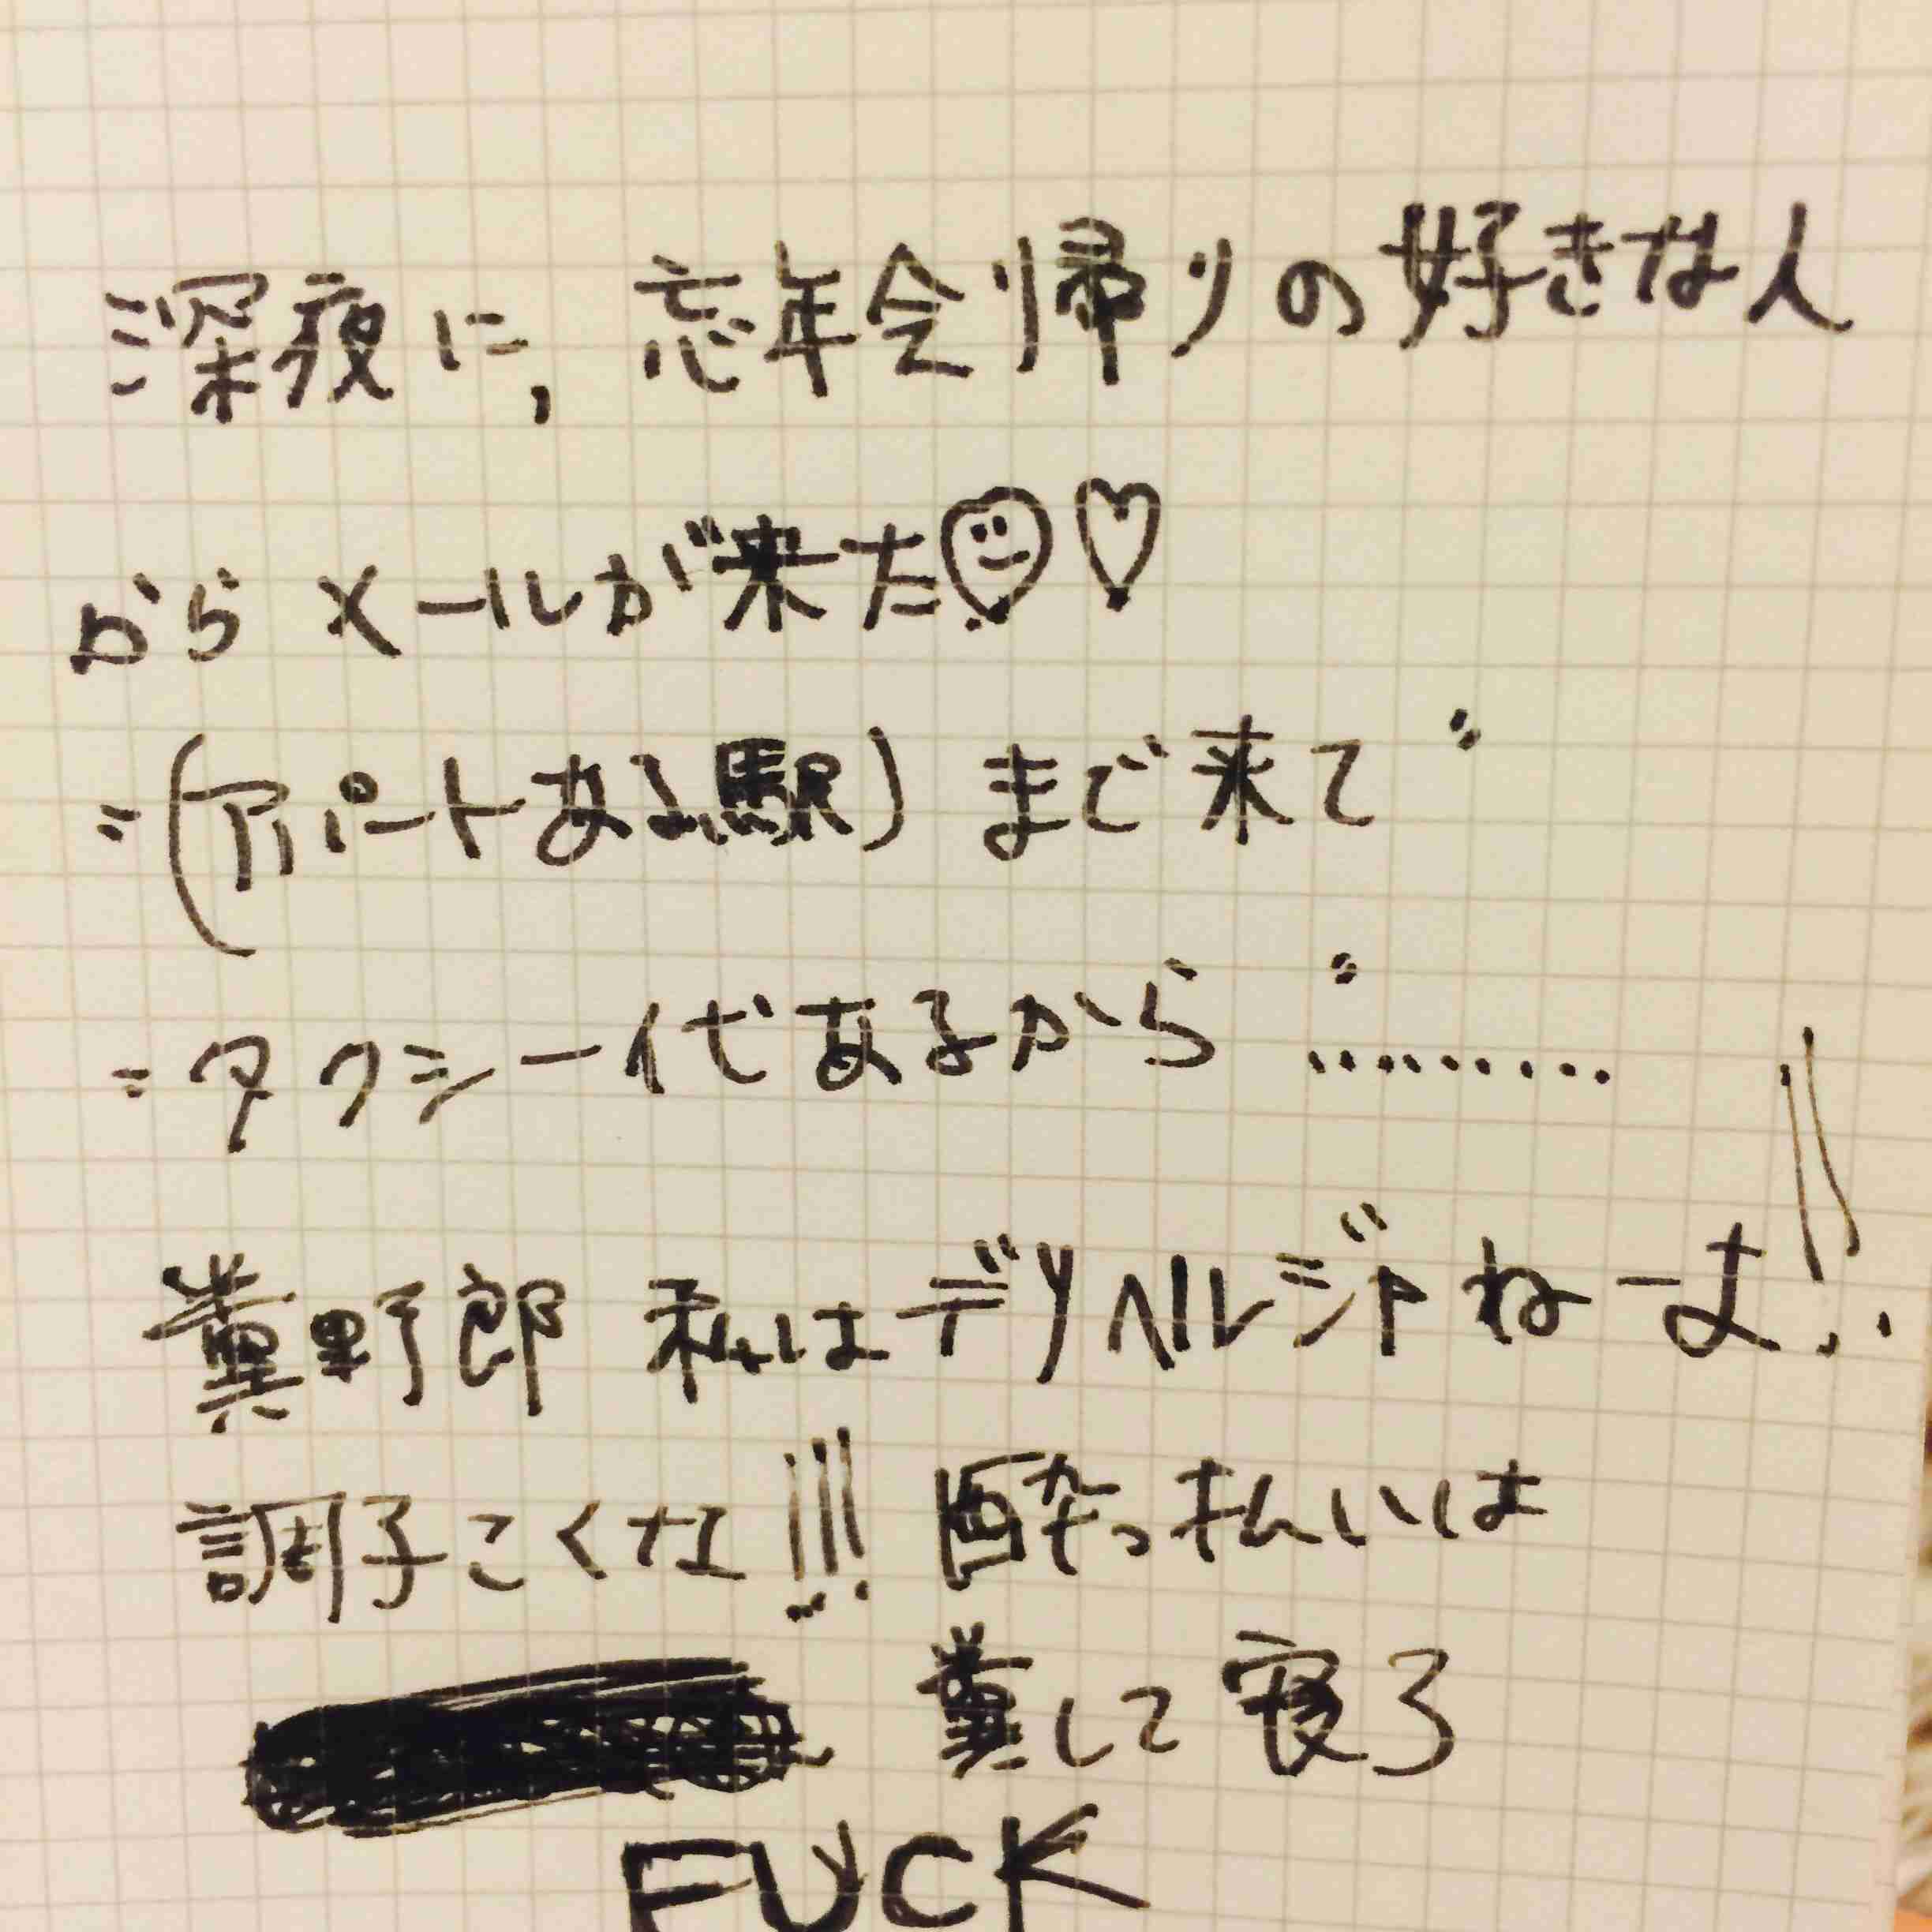 深夜に, 忘年会帰りの好きな人
からメールが来た
"(アパートある駅)まで来て"
"タクシー代あるから".........
糞野郎 私はデリヘルジャねーよ!!
調子こくなよ!!! 酔っ払いは
糞して寝ろ
FUCK